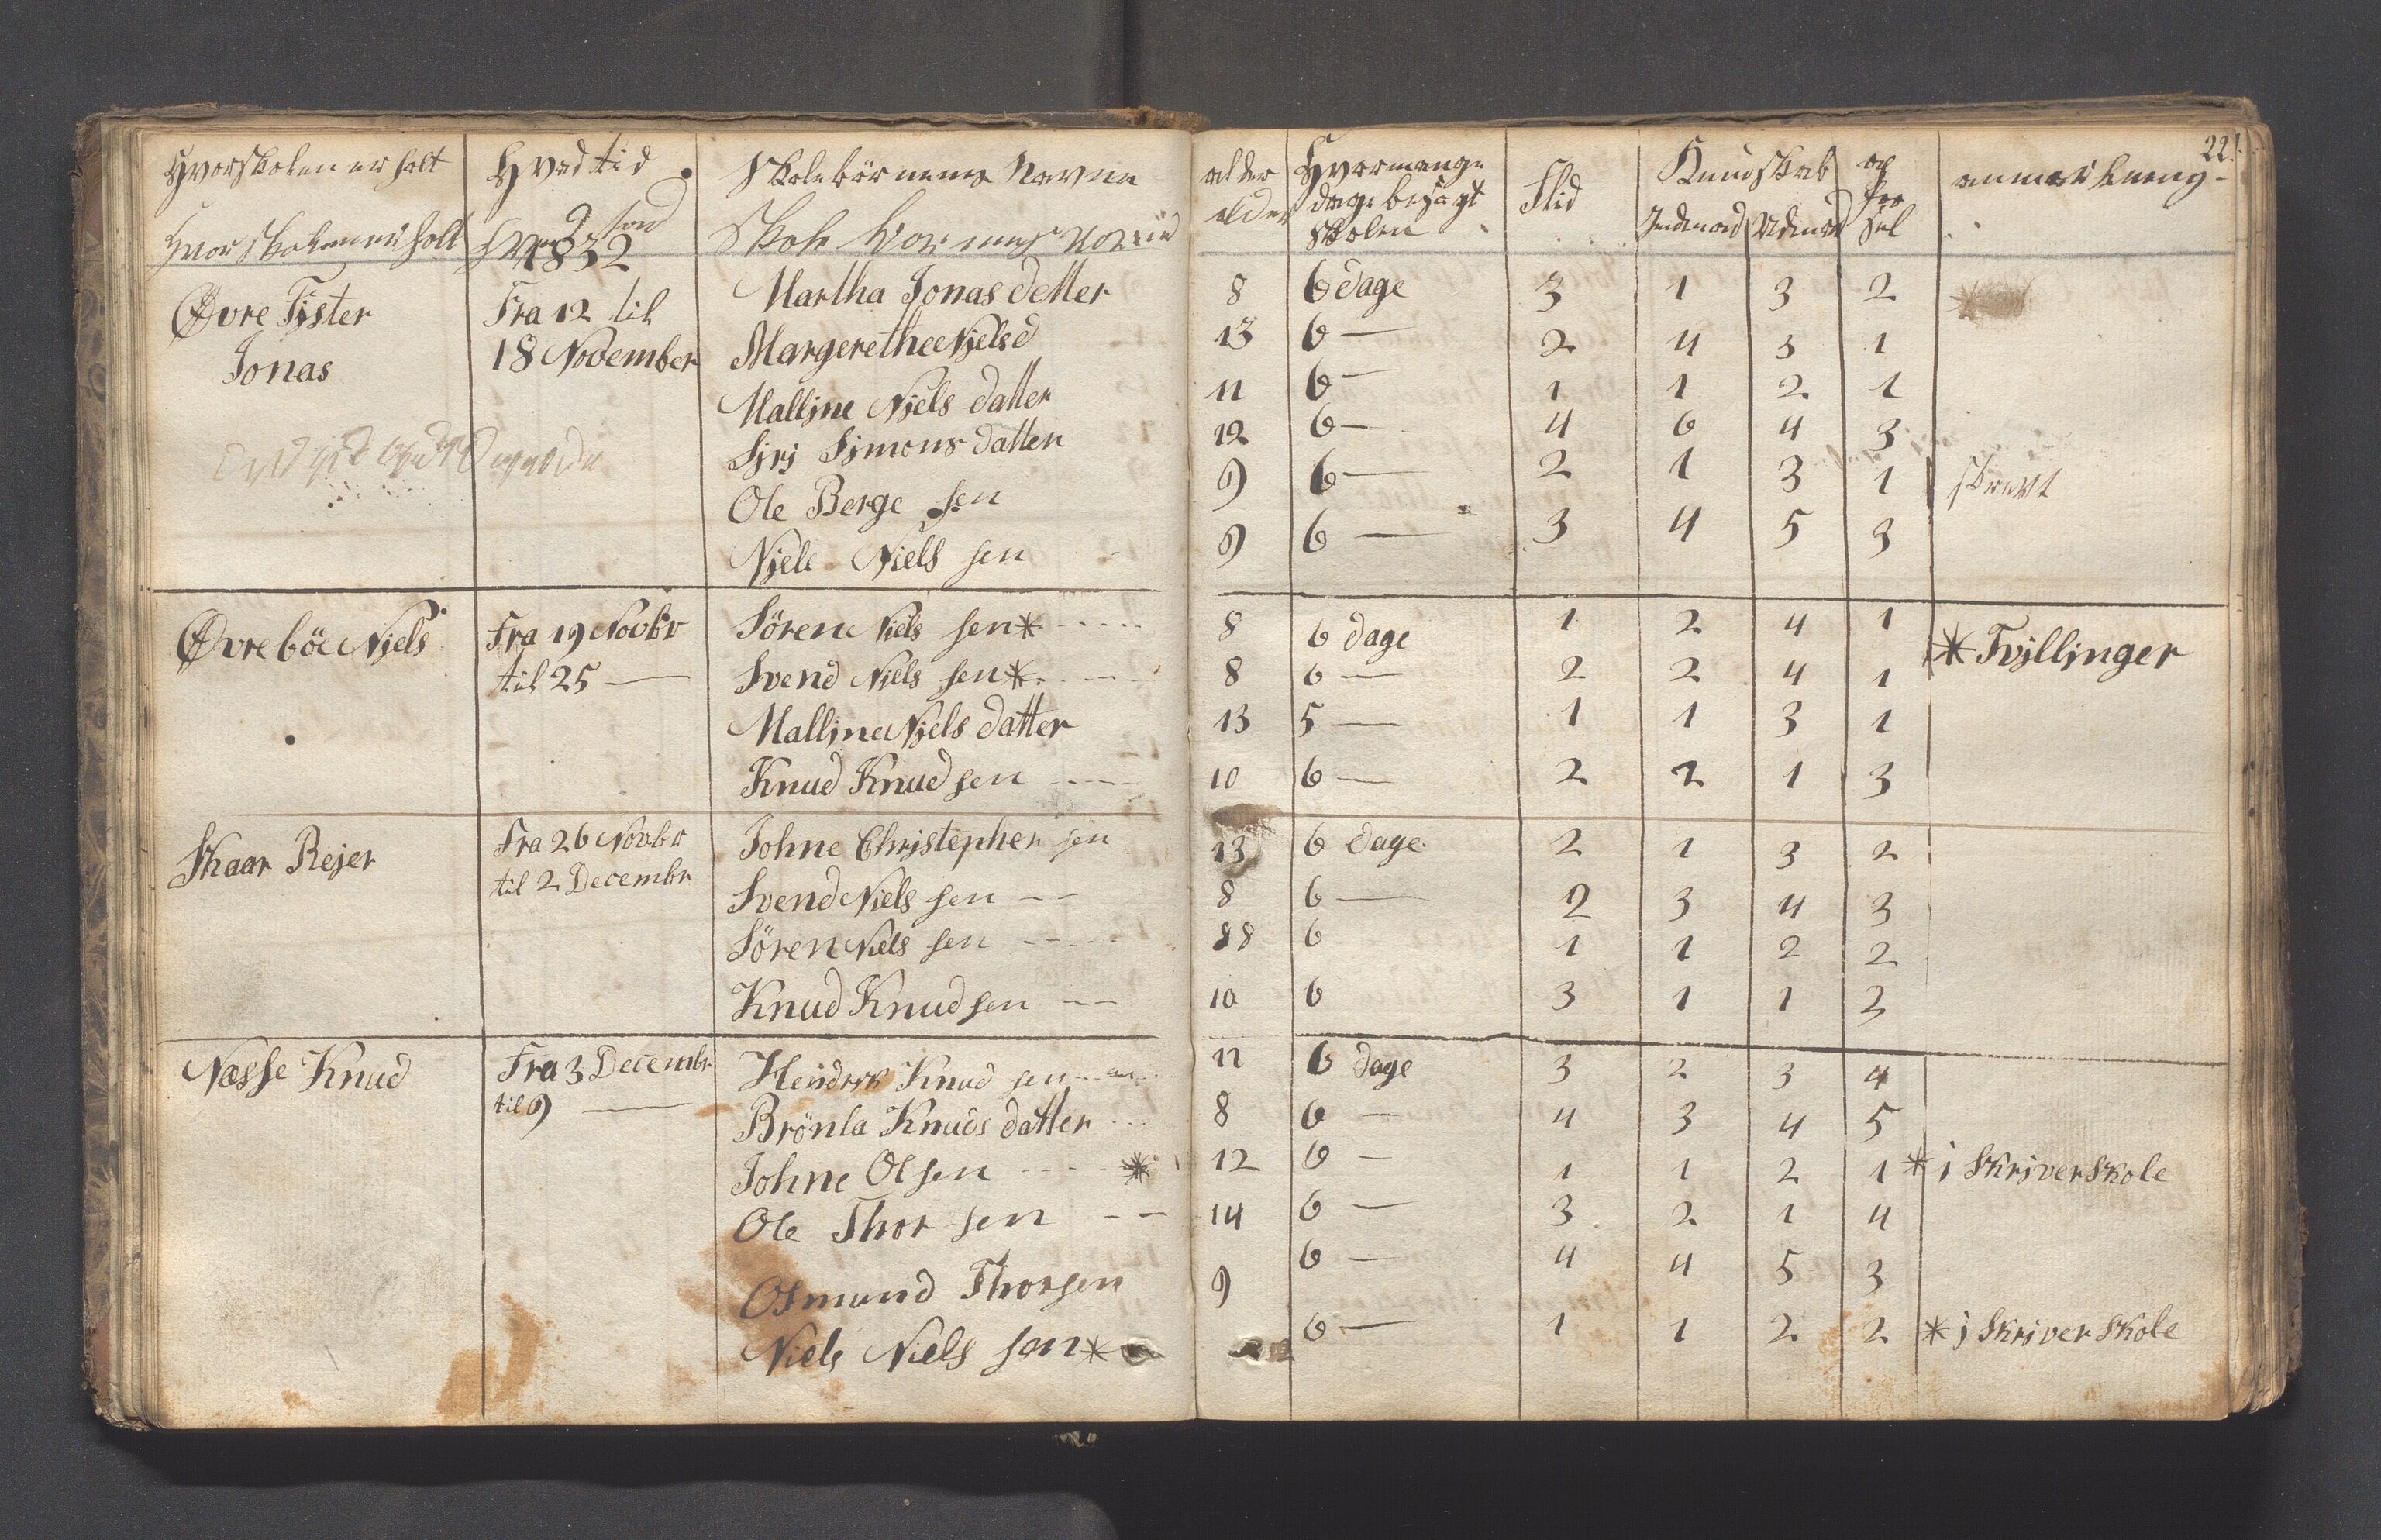 22.
Hvor skolen er holt Hvad tid Skolebörnens Navne alder Hvormange dage besögt skolen Flid Kundskab Indenad Udenad og For sel anmærkning
Hvor skolen er holt 1832 Skole alder
Øvre Fister Fra 12 til Martha Jonas datter 8 6 dage 3 1 3 2
Jonas 18 November Margerethe Njels d 13 6 — 2 4 3 1
Malljne Njels datter 11 6 — 1 1 2 1
Sjrj Sjmons datter 12 6 — 4 6 4 3
Ole Berge sen 9 6 — 2 1 3 1
Njels Niels sen 9 6 — 3 4 5 3
Øvreböe Njels Fra 19 Novbr Sören Niels sen * 8 6 dage 1 2 4 1 * Tvjllinger
til 25 — Svend Niels sen * 8 6 — 2 2 4 1
Malljne Njels datter 13 5 — 1 1 3 1
Knud Knudsen 10 6 — 2 2 1 3
Skaar Rejer Fra 26 Novbr Johne Chrjstepher sen 13 6 dage 2 1 3 2
til 2 Decembr Svend Niels sen — 8 6 — 2 3 4 3
Sören Niels sen 88 6 1 1 2 2
Knud Knudsen — 10 6 3 1 1 3
Næsse Knud Fra 3 Decembr Hendrek Knud sen 11 6 dage 3 2 3 4
til 9 — Brönla Knuds datter 8 6 — 4 3 4 5
Johne Olsen * 12 6 — 1 1 2 1 * i Skrjverskole
Ole Thor sen — 14 6 — 3 2 1 4
Osmund Thorsen 9 6 — 4 4 5 3
Niels Niels sen * 6 — 1 1 2 2 * j Skrjver skole